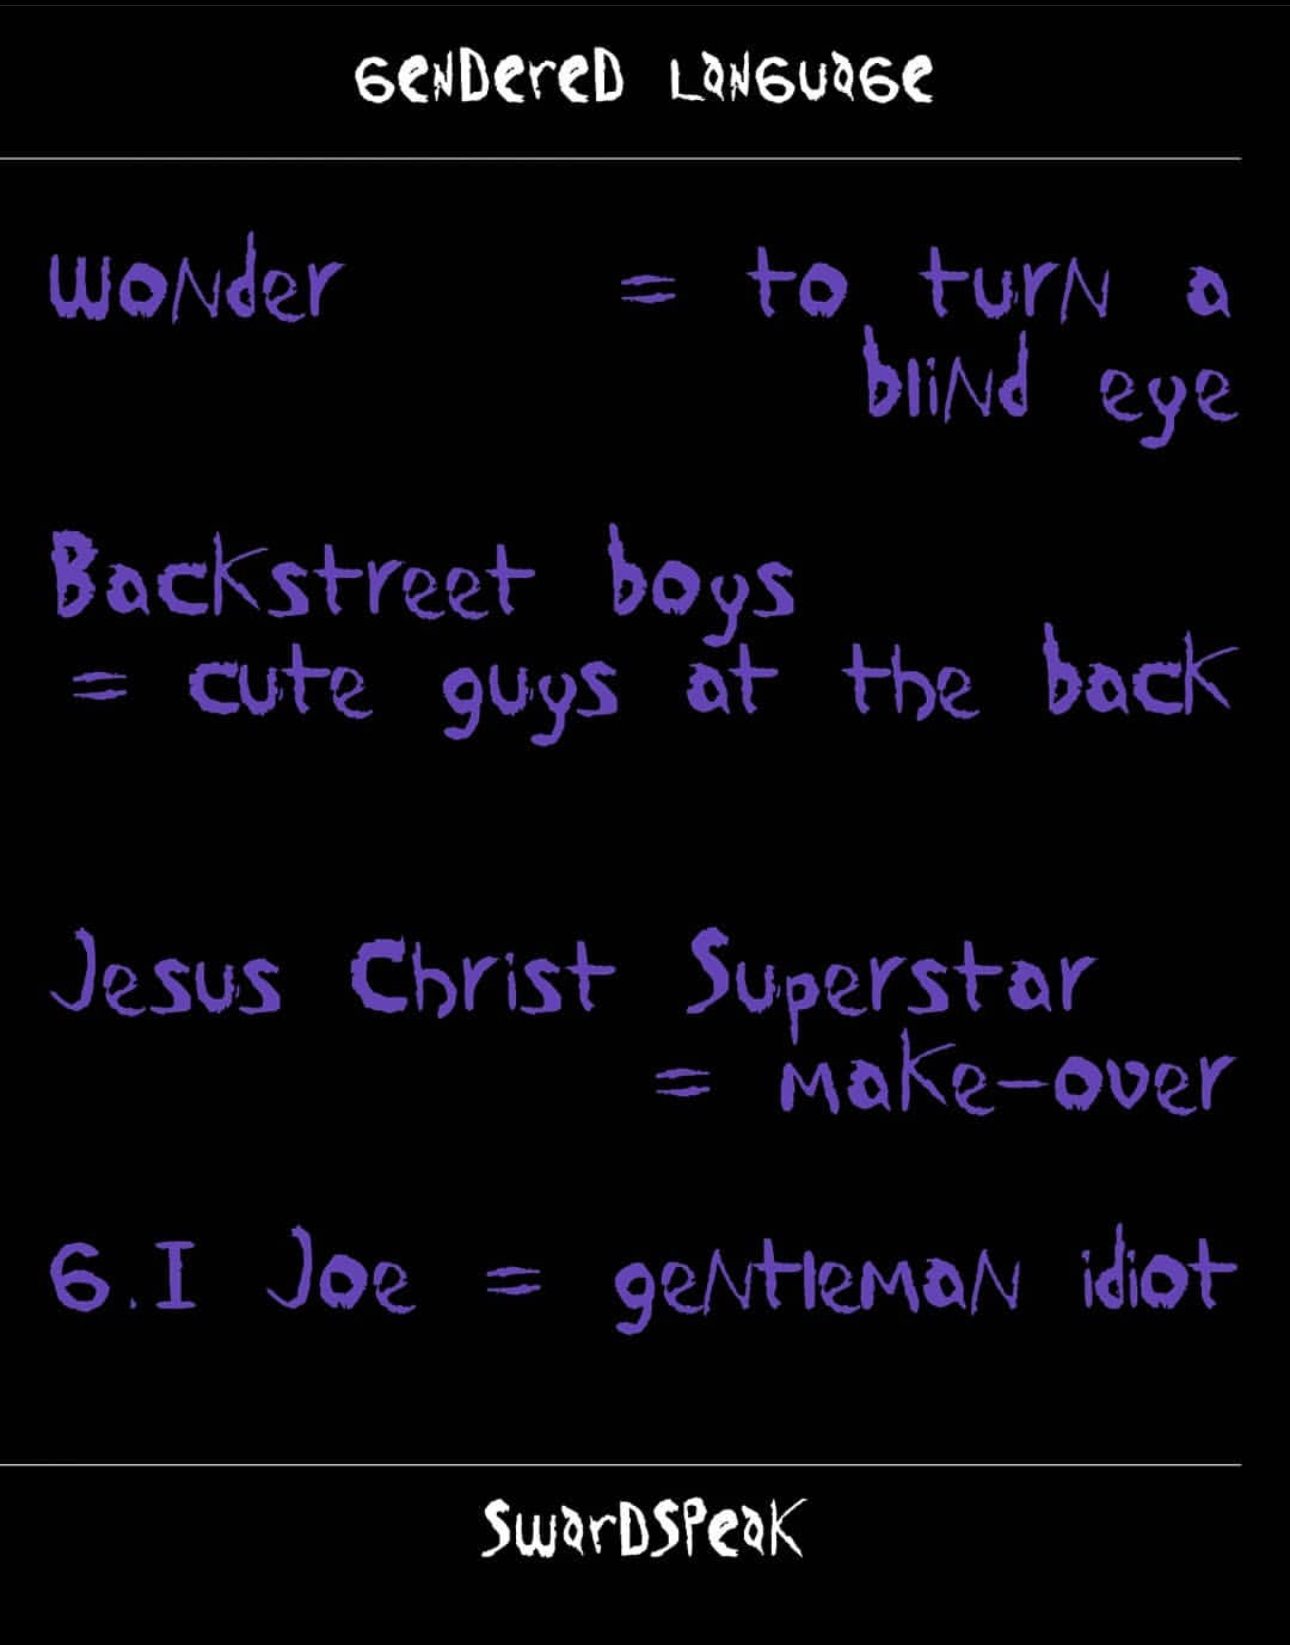 GENDERED LANGUAGE
wonder = to turn a
blind eye
Backstreet boys
= cute guys at the back
Jesus Christ Superstar
= make-over
G.I Joe = gentleman idiot
SWARDSPEAK